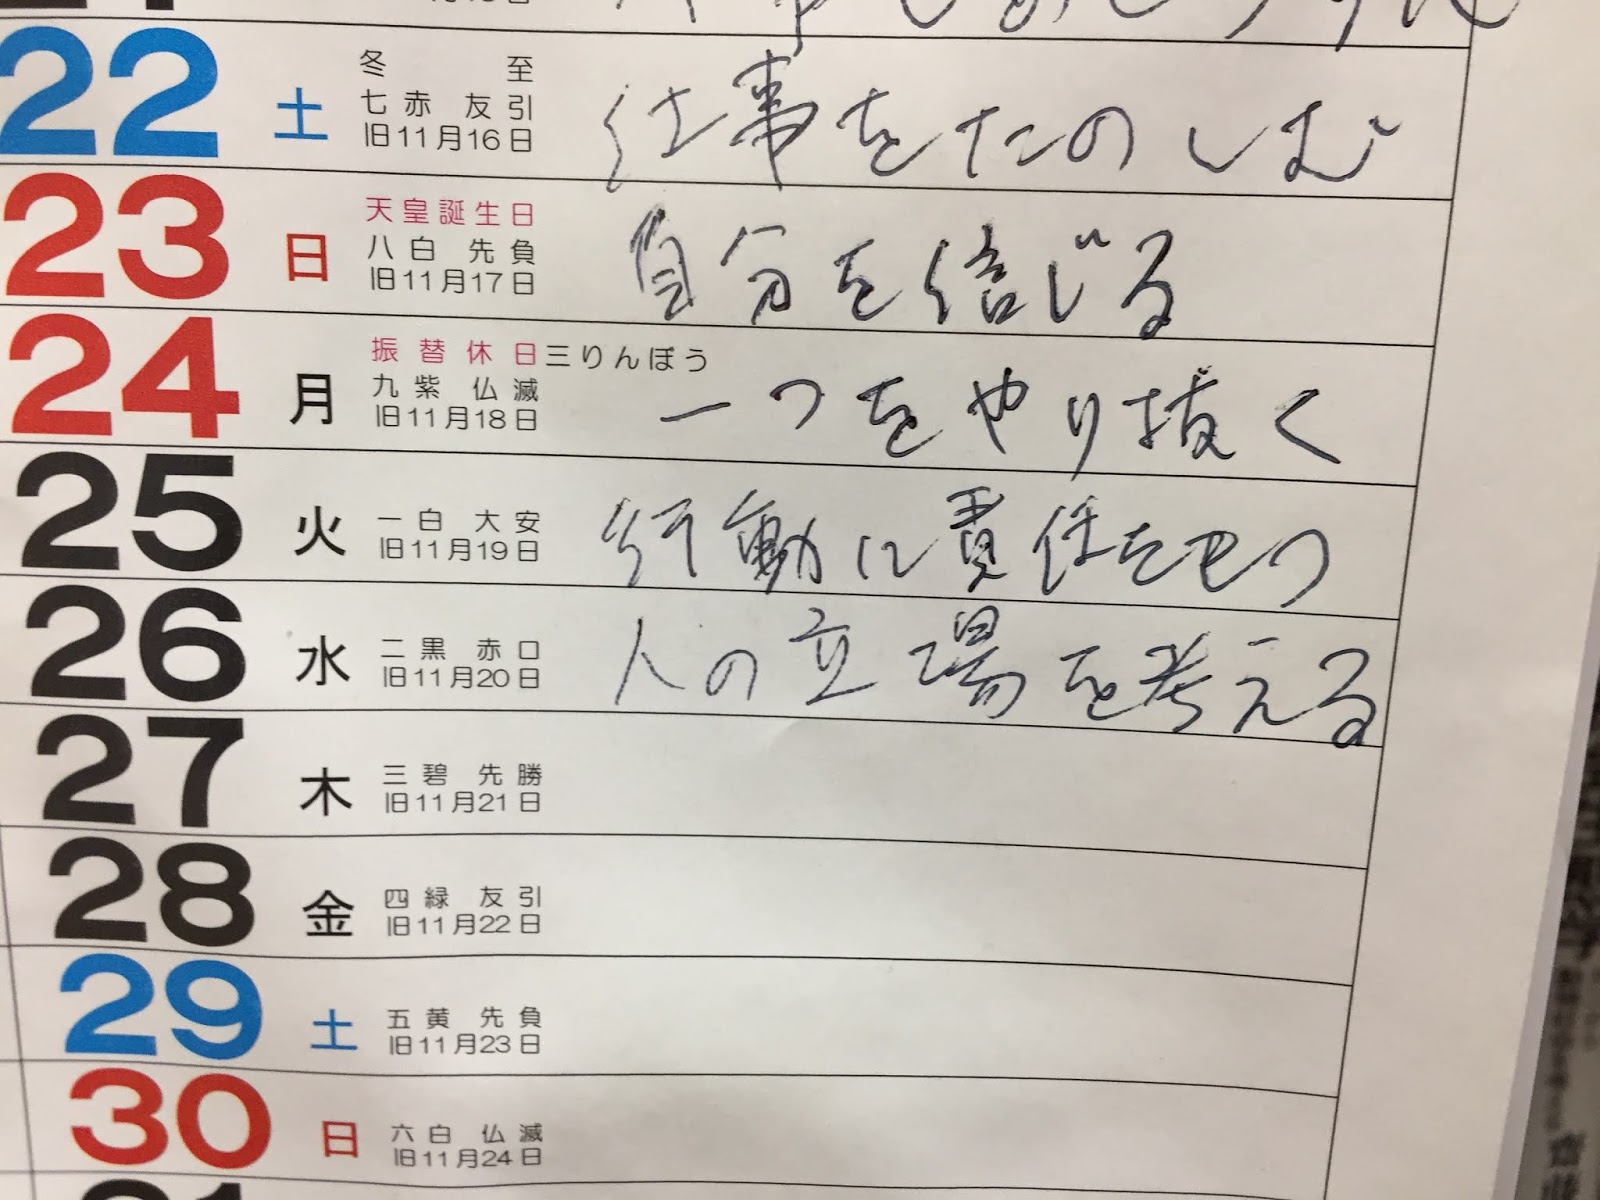 22 土 冬至 仕事をたのしむ
七赤 友引
旧11月16日
23 日 天皇誕生日 自分を信じる
八白 先負
旧11月17日
24 月 振替休日 三りんぼう
九紫 仏滅 一つをやり抜く
旧11月18日
25 火 一白 大安 行動に責任をもつ
旧11月19日
26 水 二黒 赤口 人の立場を考える
旧11月20日
27 木 三碧 先勝
旧11月21日
28 金 四緑 友引
旧11月22日
29 土 五黄 先負
旧11月23日
30 日 六白 仏滅
旧11月24日